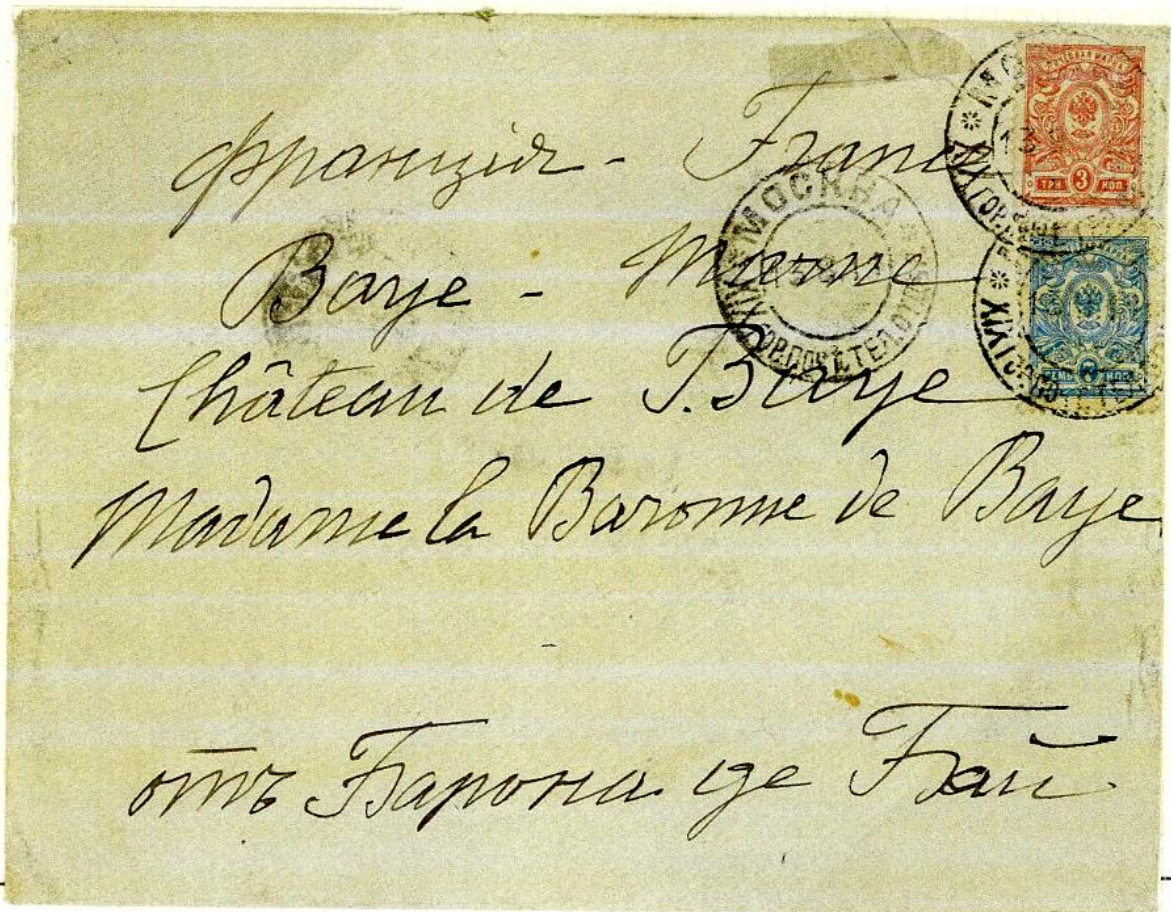 Франція - France
Baye - Marne
Château de Baye
Madame la Baronne de Baye
отъ Барона де Бай
МОСКВА
ТРИ 3 КОП.
СЕМЬ 7 КОП.